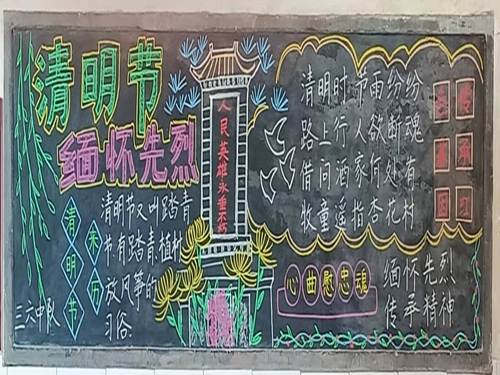 清明节
缅怀先烈
清明节
来历
清明节又叫踏青
节有踏青,植树
放风筝的
习俗.
三六中队
人民英雄永垂不朽
清明时节雨纷纷
路上行人欲断魂
借问酒家何处有
牧童遥指杏花村
心曲慰忠魂
缅怀先烈
传承精神